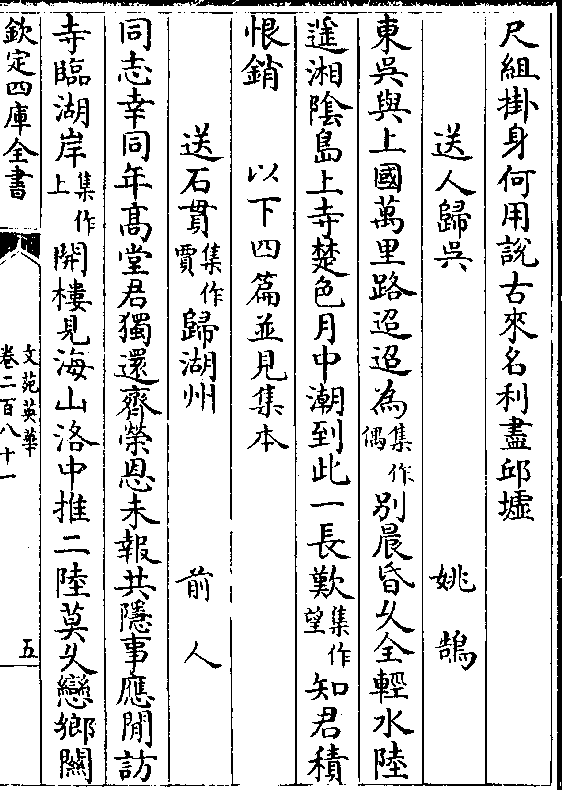 尺組掛身何用說古來名利盡邱墟
送人歸吳 姚鵠
東吳與上國萬里路迢迢為集作偶别晨昏乆全輕水陸
遥湘陰島上寺楚色月中潮到此一長歎集作望知君積
恨銷 以下四篇並見集本
送石貫集作賈歸湖州 前人
同志幸同年高堂君獨還齊榮恩未報共隱事應閒訪
寺臨湖岸集作上開樓見海山洛中推二陸莫乆戀鄉關
欽定四庫全書
文苑英華
卷二百八十一
五